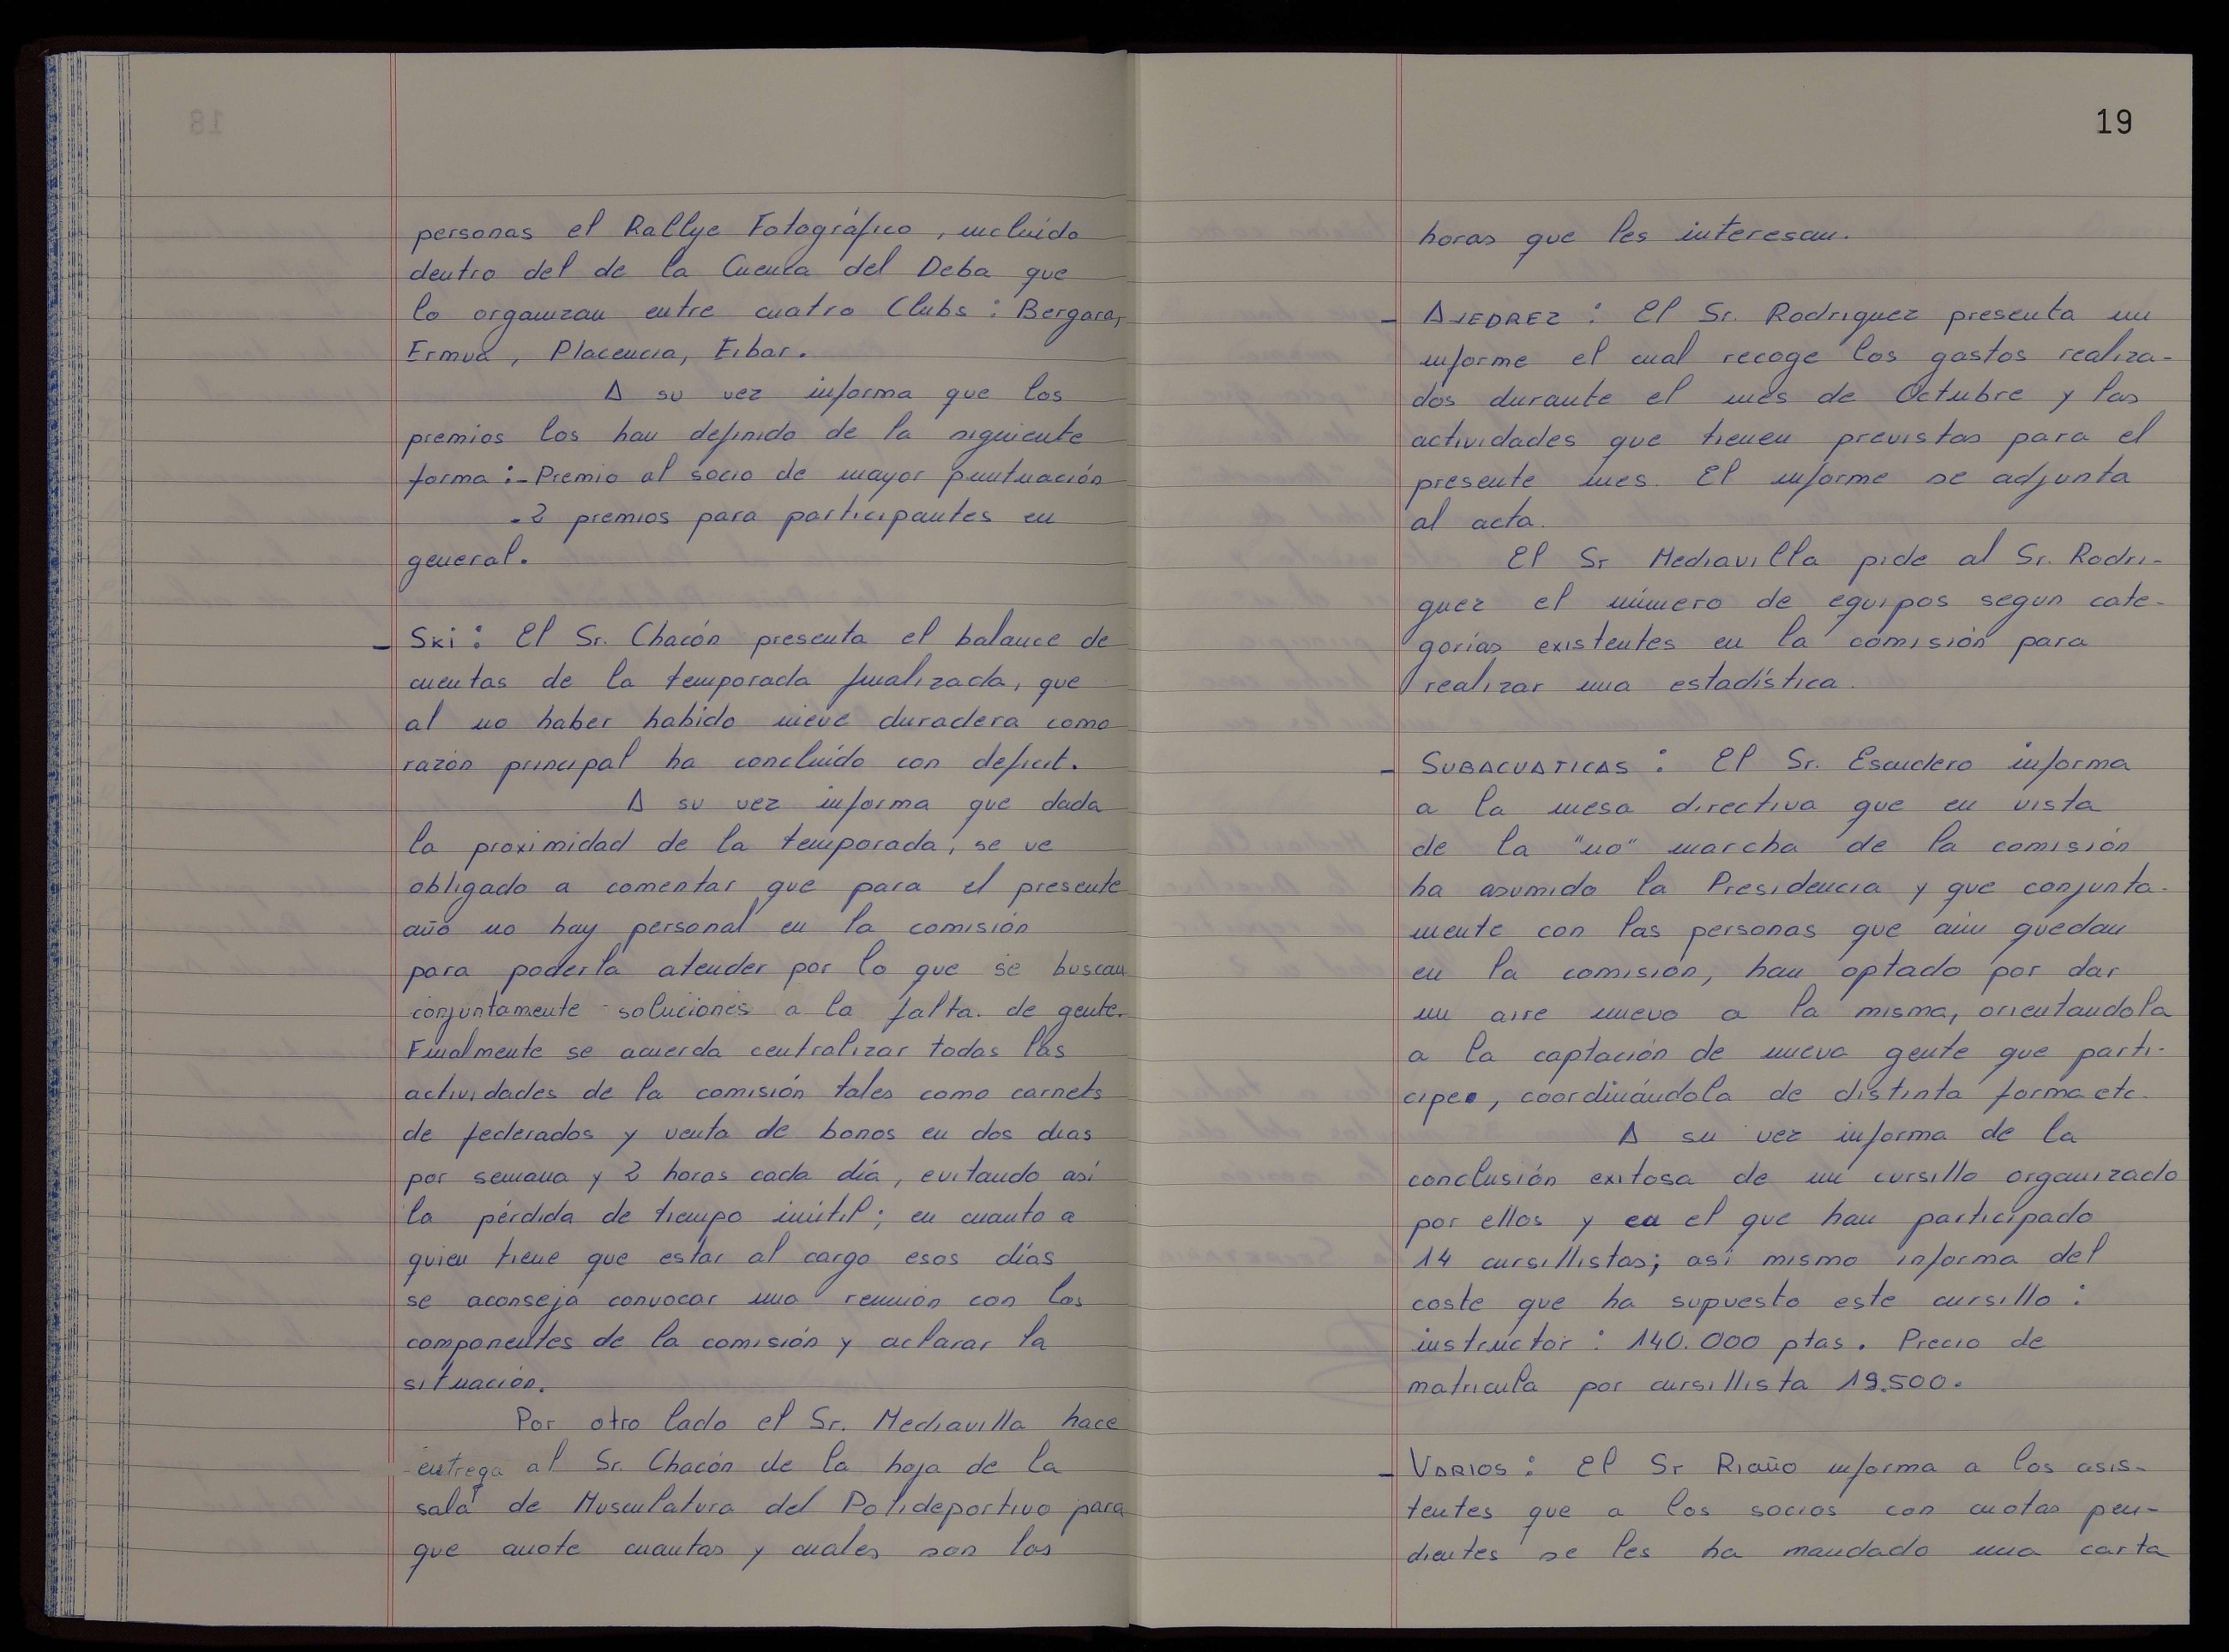 personas el Rallye Fotográfico, incluído
dentro del de la Cuenca del Deba que
lo organizan entre cuatro Clubs : Bergara,
Ermua, Placencia, Eibar.
A su vez informa que los
premios los han definido de la siguiente
forma :- Premio al socio de mayor puntuación
- 2 premios para participantes en
general.
- SKi : El Sr. Chacón presenta el balance de
cuentas de la temporada finalizada, que
al no haber habido nieve duradera como
razón principal ha concluído con deficit.
A su vez informa que dada
la proximidad de la temporada, se ve
obligado a comentar que para el presente
año no hay personal en la comisión
para poderla atender por lo que se buscan
conjuntamente soluciones a la falta de gente.
Finalmente se acuerda centralizar todas las
actividades de la comisión tales como carnets
de federados y venta de bonos en dos dias
por semana y 2 horas cada día, evitando así
la pérdida de tiempo inútil; en cuanto a
quien tiene que estar al cargo esos días
se aconseja convocar una reunión con los
componentes de la comisión y aclarar la
situación.
Por otro lado el Sr. Mediavilla hace
entrega al Sr. Chacón de la hoja de la
sala de Musculatura del Polideportivo para
que anote cuantas y cuales son las
19
horas que les interesan.
- AJEDREZ : El Sr. Rodriguez presenta un
informe el cual recoge los gastos realiza-
dos durante el mes de Octubre y las
actividades que tienen previstas para el
presente mes. El informe se adjunta
al acta.
El Sr Mediavilla pide al Sr. Rodri-
guez el número de equipos segun cate-
gorías existentes en la comisión para
realizar una estadística.
- SUBACUATICAS : El Sr. Escudero informa
a la mesa directiva que en vista
de la "no" marcha de la comisión
ha asumido la Presidencia y que conjunta-
mente con las personas que aún quedan
en la comisión, han optado por dar
un aire nuevo a la misma, orientandola
a la captación de nueva gente que parti-
cipe, coordinándola de distinta forma etc.
A su vez informa de la
conclusión exitosa de un cursillo organizado
por ellos y en el que han participado
14 cursillistas; así mismo informa del
coste que ha supuesto este cursillo :
instructor : 140.000 ptas. Precio de
matricula por cursillista 19.500.
- VARIOS : El Sr Riaño informa a los asis-
tentes que a los socios con cuotas pen-
dientes se les ha mandado una carta